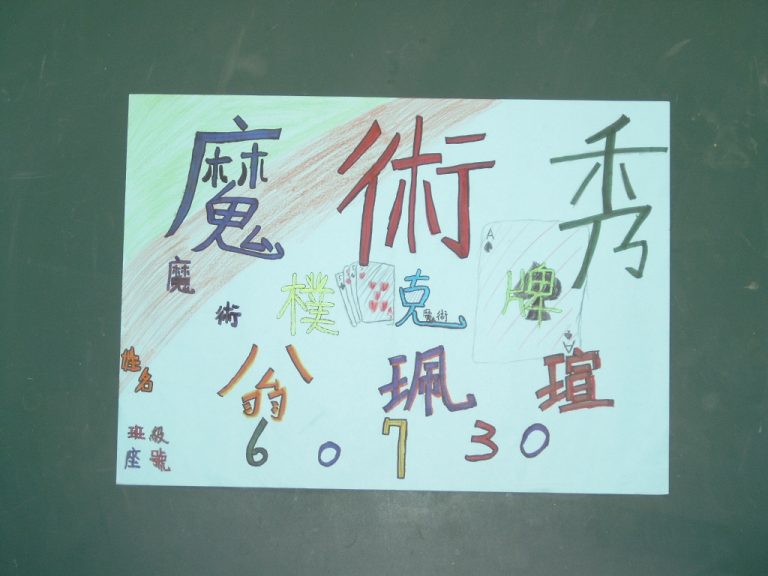 魔術秀
魔術 撲克牌
A
魔術
A
姓名 翁珮瑄
班級座號 60730